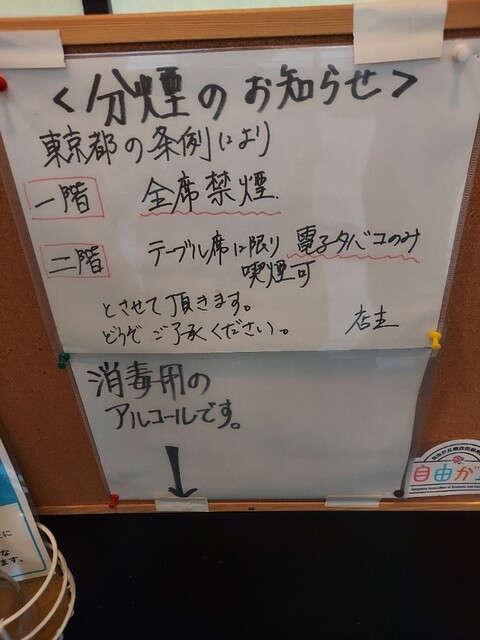 <分煙のお知らせ>
東京都の条例により
一階 全席禁煙.
二階 テーブル席に限り 電子タバコのみ
喫煙可
とさせて頂きます。
どうぞ ご了承ください。
店主
消毒用の
アルコールです。
↓
自由が
に
な
ます。